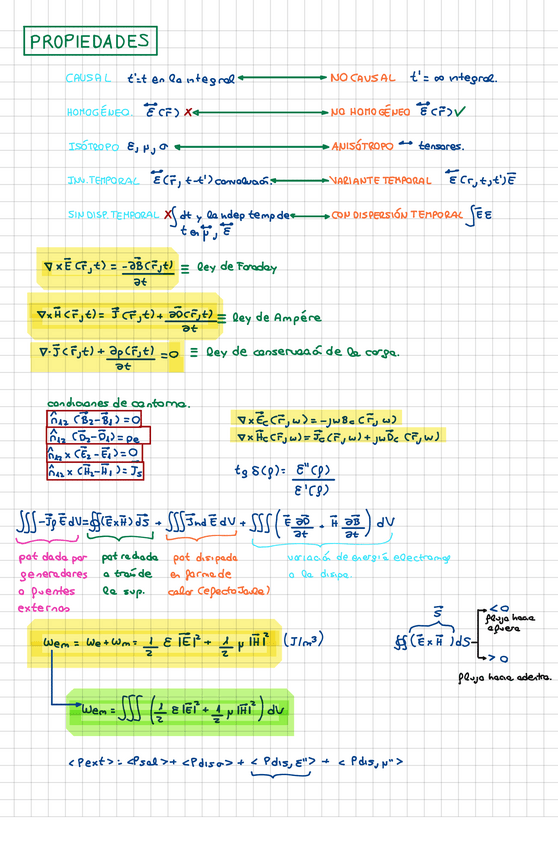 PROPIEDADES
CAUSAL t'=t en la integral ↔ NO CAUSAL t' = ∞ integral.
HOMOGÉNEO. ε⃡(r̄) X ↔ NO HOMOGÉNEO ε⃡(r̄) ✓
ISÓTROPO ε, μ, σ ↔ ANISÓTROPO ↔ tensores.
INV. TEMPORAL ε⃡(r̄, t-t') convolución ↔ VARIANTE TEMPORAL ε⃡(r, t, t') E̅
SIN DISP. TEMPORAL X∫dt y la indep temp de ↔ CON DISPERSIÓN TEMPORAL ∫ε E
t en μ⃡, ε⃡
∇ x E⃗ (r̄,t) = -∂B⃗(r̄,t)/∂t ≡ ley de Faraday
∇xH⃗ (r̄,t) = J⃗ (r̄,t) + ∂D⃗(r̄,t)/∂t ≡ ley de Ampére
∇·J⃗(r̄,t) + ∂ρ(r̄,t)/∂t = 0 ≡ ley de conservación de la carga.
condiciones de contorno.
n̂12 (B⃗2-B⃗1) = 0
n̂12 (D⃗2-D⃗1) = ρe
n̂12 x (E⃗2-E⃗1) = 0
n̂12 x (H⃗2-H⃗1) = J⃗s
∇xE⃗c(r̄,ω) = -jωBc (r̄,ω)
∇xH⃗c(r̄,ω) = J⃗c(r̄,ω) + jωD⃗c (r̄,ω)
tg δ(ρ) = ε''(ρ)/ε'(ρ)
∭-J⃗ρ E⃗ dV = ∯(E⃗xH⃗) dS⃗ + ∭J⃗nd E⃗ dV + ∭(E⃗ ∂D⃗/∂t + H⃗ ∂B⃗/∂t) dV
pot dada por generadores o fuentes externos
pot radiada a través de la sup.
pot disipada en forma de calor (efecto Joule)
variación de energía electromag a la dispo.
wem = we + wm = 1/2 ε |E⃗|² + 1/2 μ |H⃗|² (J/m³)
S⃗
∯(E⃗xH⃗)dS
< 0
flujo hacia afuera
> 0
flujo hacia adentro.
Wem = ∭ (1/2 ε |E⃗|² + 1/2 μ |H⃗|²) dV
<Pext> = <Psal> + <Pdisσ> + <Pdis,ε''> + <Pdis,μ''>